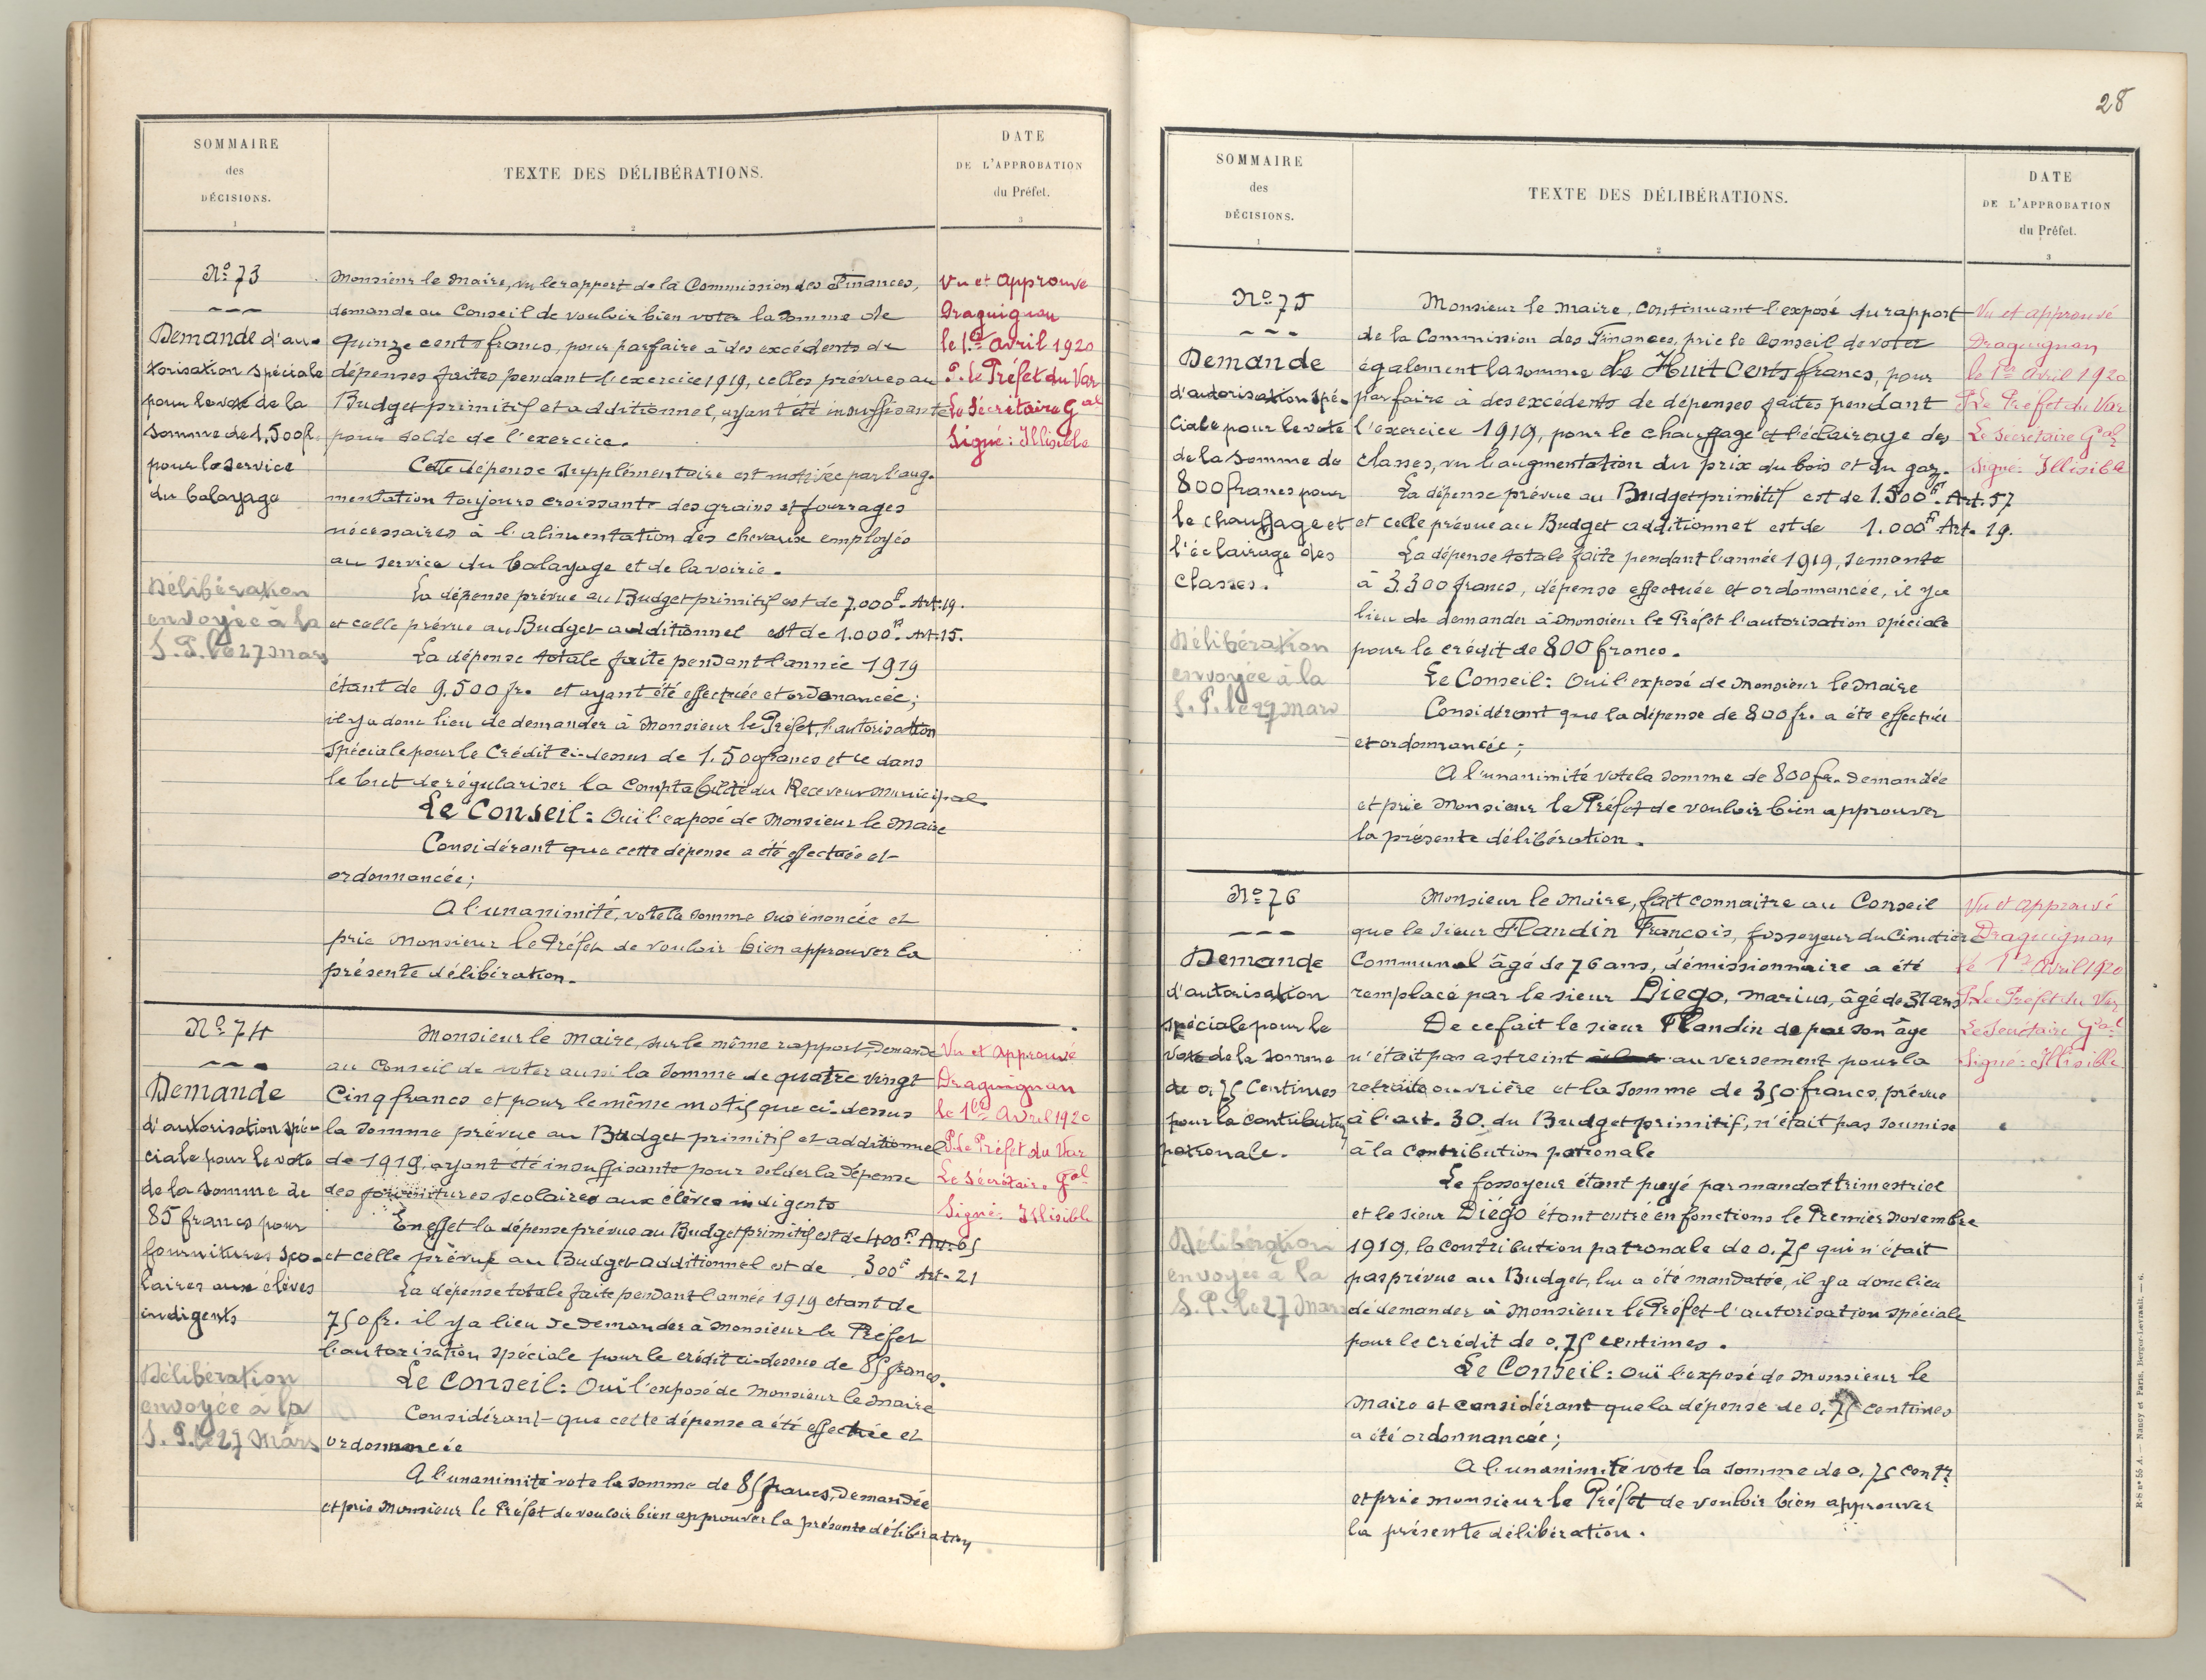 SOMMAIRE
des
DÉCISIONS.
1
TEXTE DES DÉLIBÉRATIONS.
2
DATE
DE L'APPROBATION
du Préfet.
3
No 73
Demande d'au-
torisation spéciale
pour le vote de la
somme de 1,500 fr.
pour le service
du balayage
Délibération
envoyée à la
S. P. le 27 mars
Monsieur le Maire, vu le rapport de la Commission des Finances,
demande au Conseil de vouloir bien voter la somme de
quinze cents francs, pour parfaire à des excédents de
dépenses faites pendant l'exercice 1919, celles prévues au
Budget primitif et additionnel, ayant été insuffisante
pour solde de l'exercice.
Cette dépense supplémentaire est motivée par l'aug-
mentation toujours croissante des grains et fourrages
nécessaires à l'alimentation des chevaux employés
au service du balayage et de la voirie.
La dépense prévue au Budget primitif est de 7.000 f. Art. 19.
et celle prévue au Budget additionnel est de 1.000 f. Art. 15.
La dépense totale faite pendant l'année 1919
étant de 9.500 fr. et ayant été effectuée et ordonancée;
il y a donc lieu de demander à Monsieur le Préfet, l'autorisation
spéciale pour le Crédit ci-dessus de 1.500 francs et ce dans
le but de régulariser la Comptabilité du Receveur Municipal
Le Conseil: Oui l'exposé de Monsieur le Maire
Considérant que cette dépense a été effectuée et
ordonnancée;
A l'unanimité, vote la somme sus énoncée et
prie Monsieur le Préfet de vouloir bien approuver la
présente délibération.
Vu et Approuvé
Draguignan
le 1er Avril 1920
P. Le Préfet du Var
Le Secrétaire Gal
Signé: Illisible
No 74
Demande
d'autorisation spé-
ciale pour le vote
de la somme de
85 francs pour
fournitures sco-
laires aux élèves
indigents
Délibération
envoyée à la
S. P. le 27 Mars
Monsieur le Maire, sur le même rapport, demande
au Conseil de voter aussi la somme de quatre vingt
Cinq francs et pour le même motif que ci-dessus
la somme prévue au Budget primitif et additionnel
de 1919, ayant été insuffisante pour solder la dépense
des fournitures scolaires aux élèves indigents
En effet la dépense prévue au Budget primitif est de 400 f. Art. 65
et celle prévue au Budget additionnel est de 300 f Art. 21
La dépense totale faite pendant l'année 1919 étant de
750 fr. il y a lieu de demander à Monsieur le Préfet
l'autorisation spéciale pour le crédit ci-dessus de 85 francs.
Le Conseil: Oui l'exposé de Monsieur le Maire
Considérant que cette dépense a été effectuée et
ordonnancée
A l'unanimité vote la somme de 85 francs, demandée
et prie Monsieur le Préfet de vouloir bien approuver la présente délibération
Vu et Approuvé
Draguignan
le 1er Avril 1920
P. Le Préfet du Var
Le Secrétaire Gal
Signé: Illisible
28
SOMMAIRE
des
DÉCISIONS.
1
TEXTE DES DÉLIBÉRATIONS.
2
DATE
DE L'APPROBATION
du Préfet.
3
No 75
Demande
d'autorisation spé-
ciale pour le vote
de la somme de
800 francs pour
le chauffage et
l'éclairage des
Classes.
Délibération
envoyée à la
S. P. le 27 Mars
Monsieur le Maire, continuant l'exposé du rapport
de la Commission des Finances, prie le Conseil de voter
également la somme de Huit Cents francs, pour
parfaire à des excédents de dépenses faites pendant
l'exercice 1919, pour le chauffage et l'éclairage des
classes, vu l'augmentation du prix du bois et du gaz.
La dépense prévue au Budget primitif est de 1.500 f. Art. 57
et celle prévue au Budget additionnel est de 1.000 f Art. 19.
La dépense totale faite pendant l'année 1919, se monte
à 3.300 francs, dépense effectuée et ordonnancée, il y a
lieu de demander à Monsieur le Préfet l'autorisation spéciale
pour le crédit de 800 francs.
Le Conseil: Oui l'exposé de Monsieur le Maire
Considérant que la dépense de 800 fr. a été effectuée
et ordonnancée;
A l'unanimité vote la somme de 800 fr. demandée
et prie Monsieur le Préfet de vouloir bien approuver
la présente délibération.
Vu et approuvé
Draguignan
le 1er Avril 1920
P Le Préfet du Var
Le Secrétaire Gal
Signé: Illisible
No 76
Demande
d'autorisation
spéciale pour le
vote de la somme
de 0.75 Centimes
pour la contribution
patronale.
Délibération
envoyée à la
S. P. le 27 Mars
Monsieur le Maire, fait connaitre au Conseil
que le sieur Flandin François, fossoyeur du Cimetière
Communal âgé de 76 ans, démissionnaire a été
remplacé par le sieur Diego, Marius, âgé de 31 ans
De ce fait le sieur Flandin de par son âge
n'était pas astreint au versement pour la
retraite ouvrière et la somme de 350 francs, prévue
à l'art. 30 du Budget primitif, n'était pas soumise
à la contribution patronale
Le fossoyeur étant payé par mandat trimestriel
et le sieur Diégo étant entré en fonctions le Premier Novembre
1919, la contribution patronale de 0.75 qui n'était
pas prévue au Budget, lui a été mandatée, il y a donc lieu
de demander à Monsieur le Préfet l'autorisation spéciale
pour le crédit de 0,75 centimes.
Le Conseil: Oui l'exposé de Monsieur le
Maire et considérant que la dépense de 0.75 centimes
a été ordonnancée;
A l'unanimité vote la somme de 0.75 cent
et prie monsieur le Préfet de vouloir bien approuver
la présente délibération.
Vu et approuvé
Draguignan
le 1er Avril 1920
P Le Préfet du Var
Le Secrétaire Gal
Signé: Illisible
R-S no 55 A. — Nancy et Paris, Berger-Levrault. — 6.